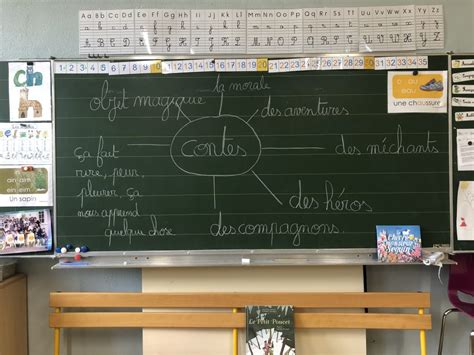 Aa Bb Cc Dd Ee Ff Gg Hh Ii Jj Kk Ll Mm Nn Oo Pp Qq Rr Ss Tt Uu Vv Ww Xx Yy Zz
1 2 3 4 5 6 7 8 9 10 11 12 13 14 15 16 17 18 19 20 21 22 23 24 25 26 27 28 29 30 31 32 33 34 35
ch
la morale
objet magique
des aventures
contes
des méchants
ça fait
rire, peur,
pleurer, ça
nous apprend
quelque chose.
des héros
des compagnons.
o au
eau
une chaussure
ain aim
ein eim
un sapin
La chèvre
de monsieur
Seguin
Le Petit Poucet